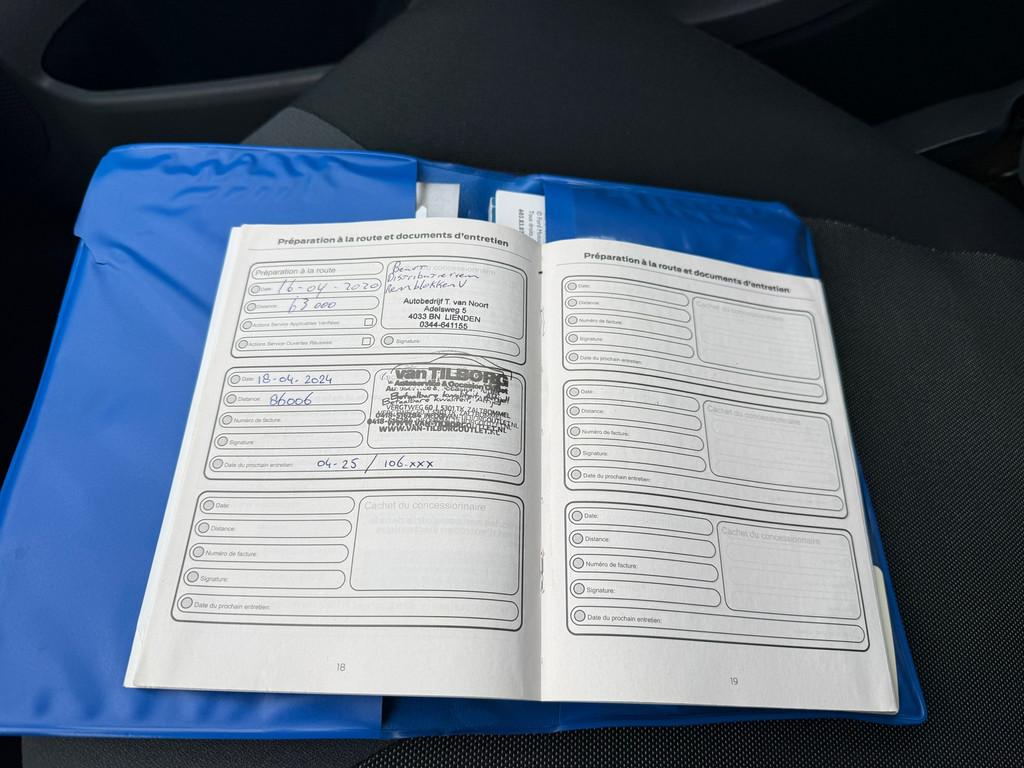 © Ford Mo
Tous droits
Préparation à la route et documents d'entretien
Préparation à la route
Date: 16-04-2020
Distance: 63000
Actions Service Applicables Vérifiées:
Actions Service Ouvertes Réussies:
Beurt
Distributieriem
Remblokken V
Autobedrijf T. van Noort
Adelsweg 5
4033 BN LIENDEN
0344-641155
Signature:
Date: 18-04-2024
Distance: 86006
Numéro de facture:
Signature:
Date du prochain entretien: 04-25 / 106.xxx
van TILBORG
Autoservice & Occasion Outlet
Betaalbare kwaliteit, Altijd!
VERGTWEG 60 | 5301 TK ZALTBOMMEL
WWW.VAN-TILBORGOUTLET.NL
Date:
Distance:
Numéro de facture:
Signature:
Date du prochain entretien:
Cachet du concessionnaire
18
Préparation à la route et documents d'entretien
Date:
Distance:
Numéro de facture:
Signature:
Date du prochain entretien:
Cachet du concessionnaire
Date:
Distance:
Numéro de facture:
Signature:
Date du prochain entretien:
Cachet du concessionnaire
Date:
Distance:
Numéro de facture:
Signature:
Date du prochain entretien:
Cachet du concessionnaire
19